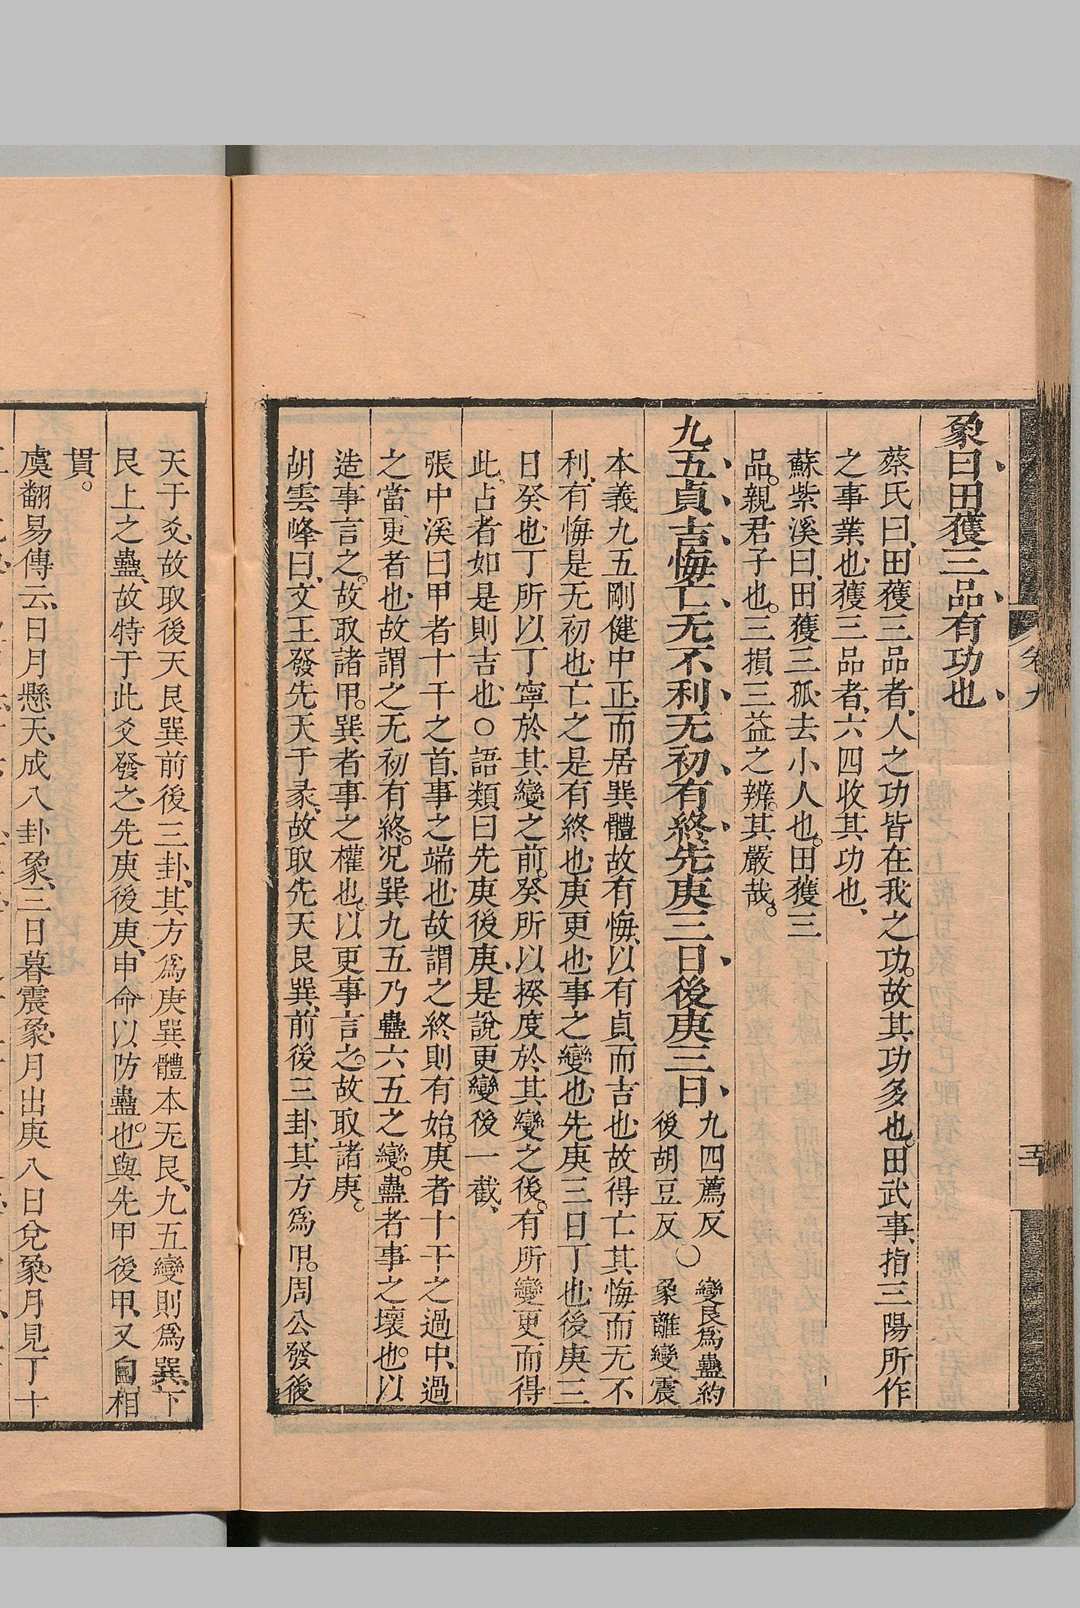 卷九
五
象曰田獲三品有功也
蔡氏曰、田獲三品者、人之功皆在我之功。故其功多也。田武事、指三陽所作
之事業也、獲三品者、六四收其功也、
蘇紫溪曰、田獲三孤、去小人也。田獲三
品。親君子也。三損三益之辨。其嚴哉。
九五貞吉悔亡无不利无初有終先庚三日後庚三日、
九四薦反
後胡豆反
〇
變艮爲蠱約
象離變震
本義九五剛健中正、而居巽體、故有悔、以有貞而吉也、故得亡其悔而无不
利、有悔是无初也、亡之是有終也、庚更也、事之變也、先庚三日丁也、後庚三
日癸也、丁所以丁寧於其變之前。癸所以揆度於其變之後。有所變更而得
此占者如是則吉也、〇語類、曰先庚後庚、是說更變後一截、
張中溪曰、甲者十干之首、事之端也、故謂之終則有始。庚者十干之過中、過
之當更者也、故謂之无初有終。况巽九五乃蠱六五之變。蠱者事之壞也。以
造事言之。故取諸甲。巽者事之權也。以更事言之。故取諸庚。
胡雲峰曰、文王發先天于彖、故取先天艮巽、前後三卦、其方爲甲。周公發後
天于爻、故取後天艮巽前後三卦、其方爲庚、巽體本无艮、九五變則爲巽、下
艮上之蠱、故特于此爻發之、先庚後庚、申命以防蠱也。與先甲後甲、又自相
貫。
虞翻易傳云、日月懸天、成八卦象、三日暮震象、月出庚、八日兌象、月見丁、十